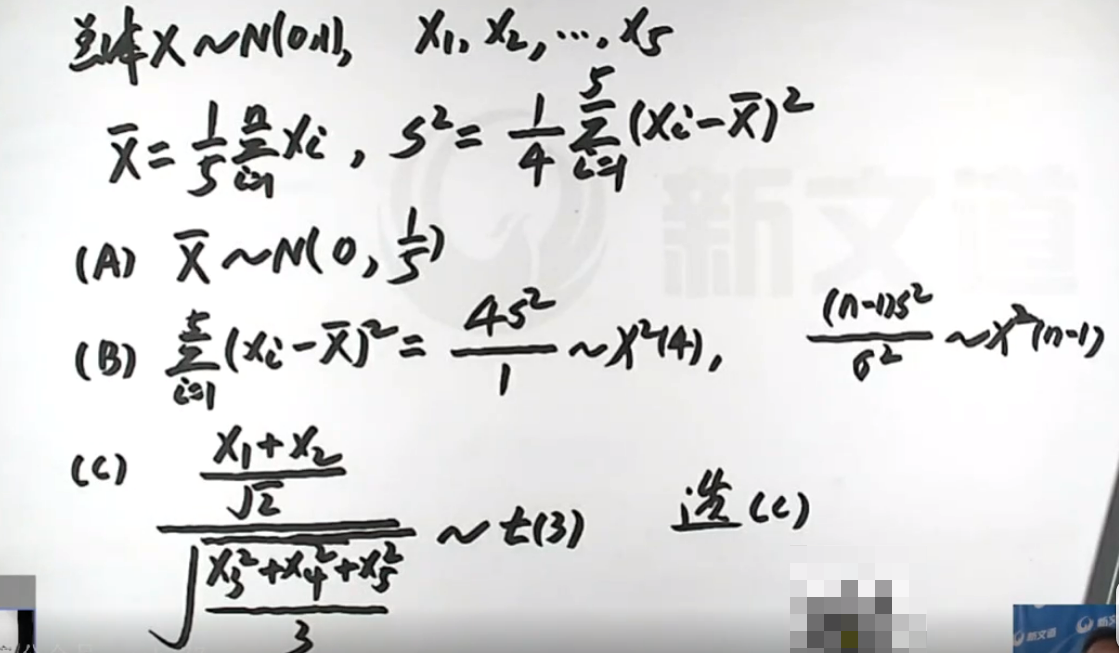 总体X~N(0,1), X₁, X₂, ⋯, X₅
X̄ = 1/5 ∑ᵢ₌₁ⁿ Xᵢ, S² = 1/4 ∑ᵢ₌₁⁵ (Xᵢ - X̄)²
(A) X̄ ~ N(0, 1/5)
(B) ∑ᵢ₌₁⁵ (Xᵢ - X̄)² = 4S²/1 ~ χ²(4), (n-1)S²/σ² ~ χ²(n-1)
(C) ((X₁+X₂)/√2) / √((X₃²+X₄²+X₅²)/3) ~ t(3) 选(C)
新文道
新文道